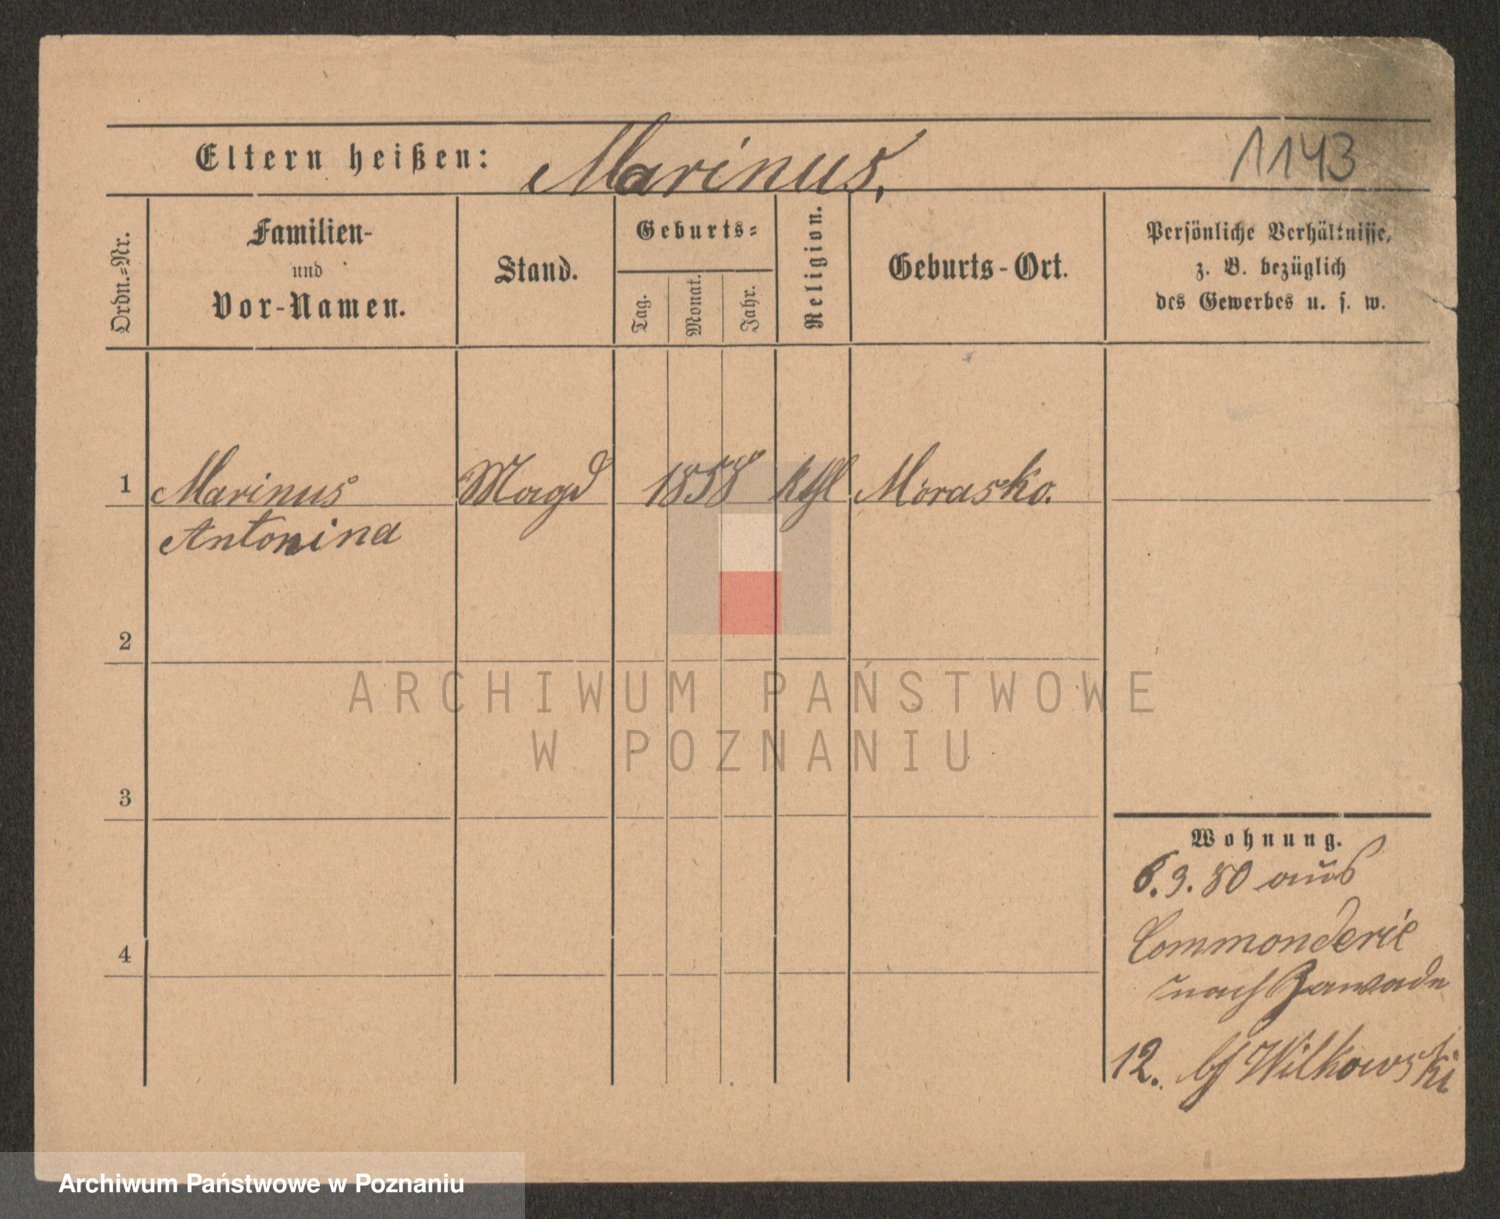 Eltern heißen: Marinus,
1143
Ordn.=Nr.
Familien-
und
Vor-Namen.
Stand.
Geburts=
Tag.
Monat.
Jahr.
Religion.
Geburts-Ort.
Persönliche Verhältnisse,
z. B. bezüglich
des Gewerbes u. s. w.
1 Marinus Magd 1858 kthl Morasko.
Antonina
2
3
4
Wohnung.
6.9.80 aus
Commonderie
nach Zawade
12. bf Wilkowski
ARCHIWUM PAŃSTWOWE
W POZNANIU
Archiwum Państwowe w Poznaniu